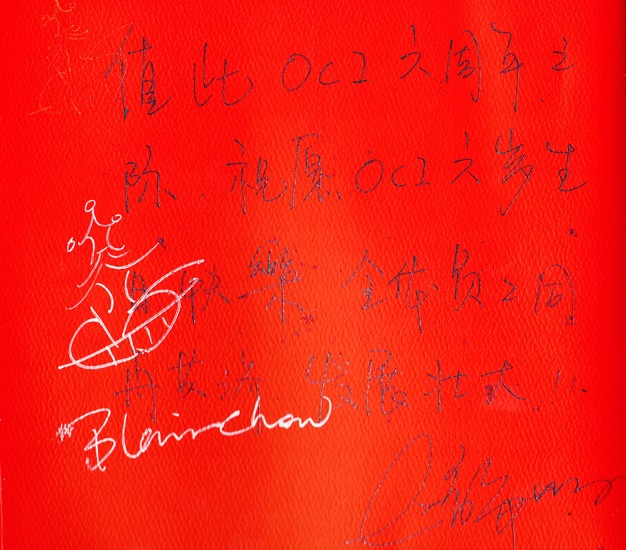 值此 OCI 六周年之
际、祝愿 OCI 六岁生
日快樂 全体员工同
舟共济 发展壮大!!
Blain Chow